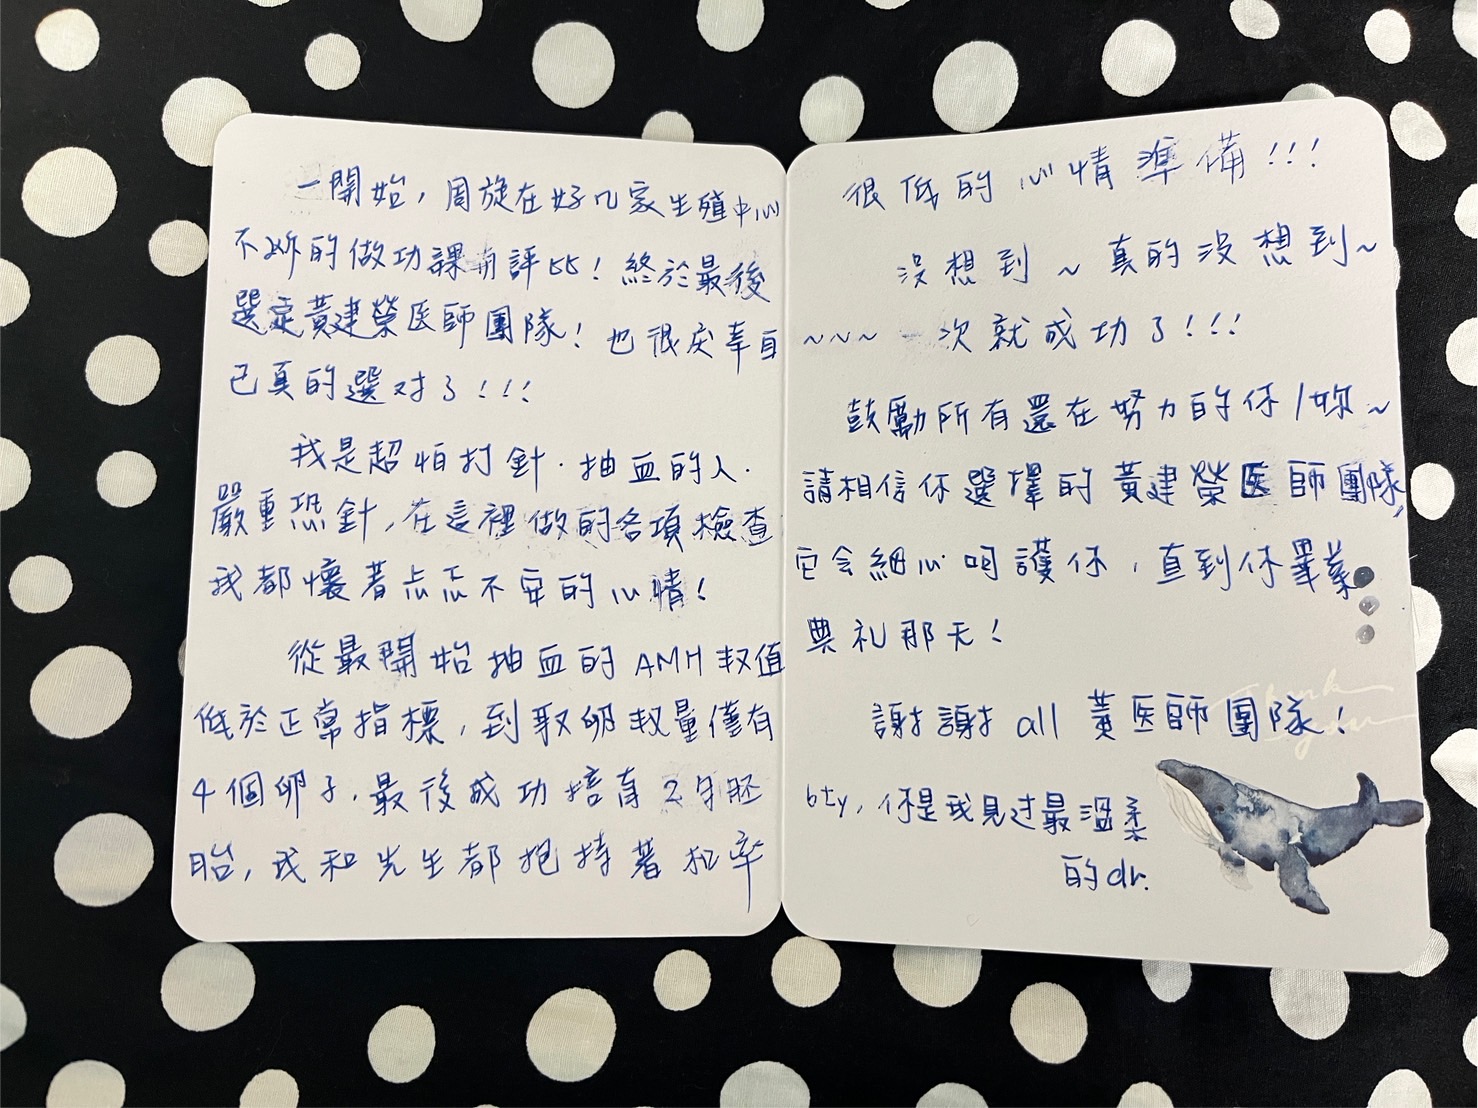 一開始，周旋在好几家生殖中心
不斷的做功課與評比！終於最後
選定黃建榮医師團隊！也很庆幸自
己真的選对了！！！
我是超怕打針．抽血的人．
嚴重恐針，在這裡做的各項檢查
我都懷著忐忑不安的心情！
從最開始抽血的AMH数值
低於正常指標，到取卵数量僅有
4個卵子．最後成功培育2個胚
胎，我和先生都抱持著机率
很低的心情準備！！！
沒想到～真的沒想到～
～～～一次就成功了！！！
鼓勵所有還在努力的你/妳～
請相信你選擇的黃建榮医師團隊，
它会細心呵護你，直到你畢業
典礼那天！
謝謝all黃医師團隊！
bty，你是我見过最溫柔
的dr.
Thank
you